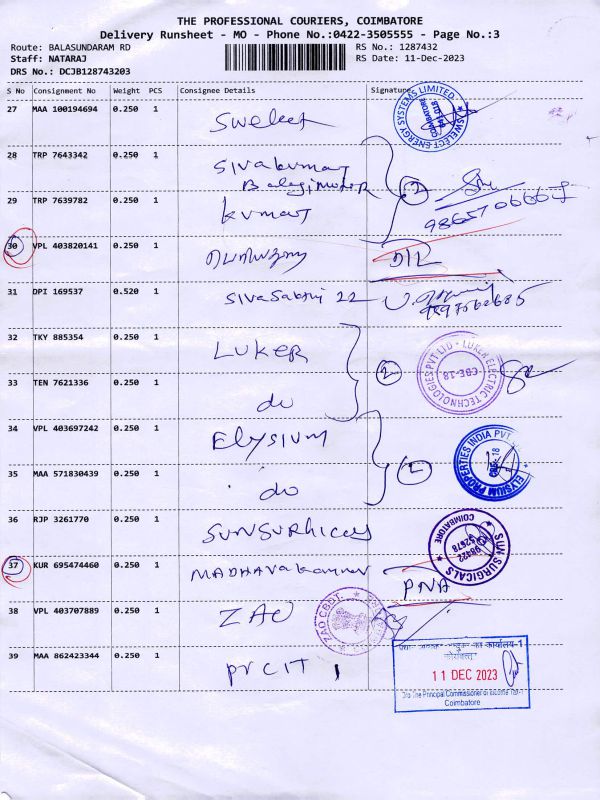 THE PROFESSIONAL COURIERS, COIMBATORE
Delivery Runsheet - MO - Phone No.:0422-3505555 - Page No.:3
Route: BALASUNDARAM RD
RS No.: 1287432
Staff: NATARAJ
RS Date: 11-Dec-2023
DRS No.: DCJB128743203
S No Consignment No Weight PCS Consignee Details Signature
27 MAA 100194694 0.250 1 Swelect
SWELECT ENERGY SYSTEMS LIMITED
COIMBATORE
641 018
28 TRP 7643342 0.250 1 Sivakumar
Balaji
2
29 TRP 7639782 0.250 1 kumar
30 VPL 403820141 0.250 1
D/L
31 DPI 169537 0.520 1 Sivasakthi 22
32 TKY 885354 0.250 1 LUKER
2
LUKER ELECTRIC TECHNOLOGIES PVT LTD
CBE-18
33 TEN 7621336 0.250 1 do
34 VPL 403697242 0.250 1 Elysium
ELYSIUM PROPERTIES INDIA PVT
CBE-18
35 MAA 571830439 0.250 1 do
36 RJP 3261770 0.250 1
SUN SURGICALS
COIMBATORE
98422
52678
37 KUR 695474460 0.250 1
PNA
38 VPL 403707889 0.250 1 ZAO
ZAO CBDT
39 MAA 862423344 0.250 1 PrCIT 1
11 DEC 2023
O/o The Principal Commissioner of Income Tax-1
Coimbatore